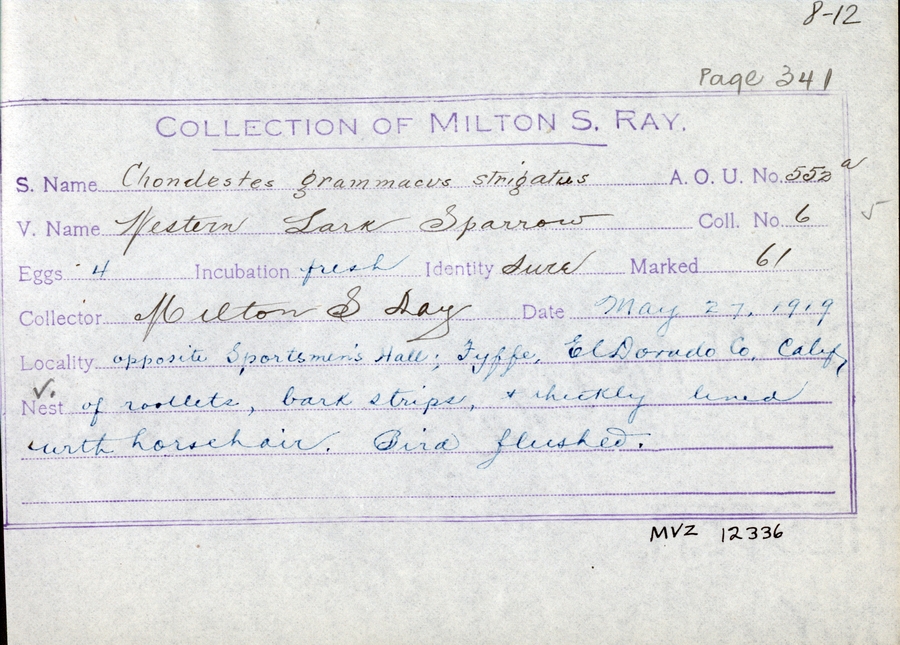 8-12
Page 341
COLLECTION OF MILTON S. RAY.
S. Name Chondestes grammacus strigatus A. O. U. No. 552a
V. Name Western Lark Sparrow Coll. No. 6
Eggs 4 Incubation fresh Identity sure Marked 61
Collector Milton S Ray Date May 27, 1919
Locality opposite Sportsmen's Hall; Fyffe, El Dorado Co, Calif,
Nest of rootlets, bark strips, & thickly lined
with horsehair. Bird flushed.
MVZ 12336